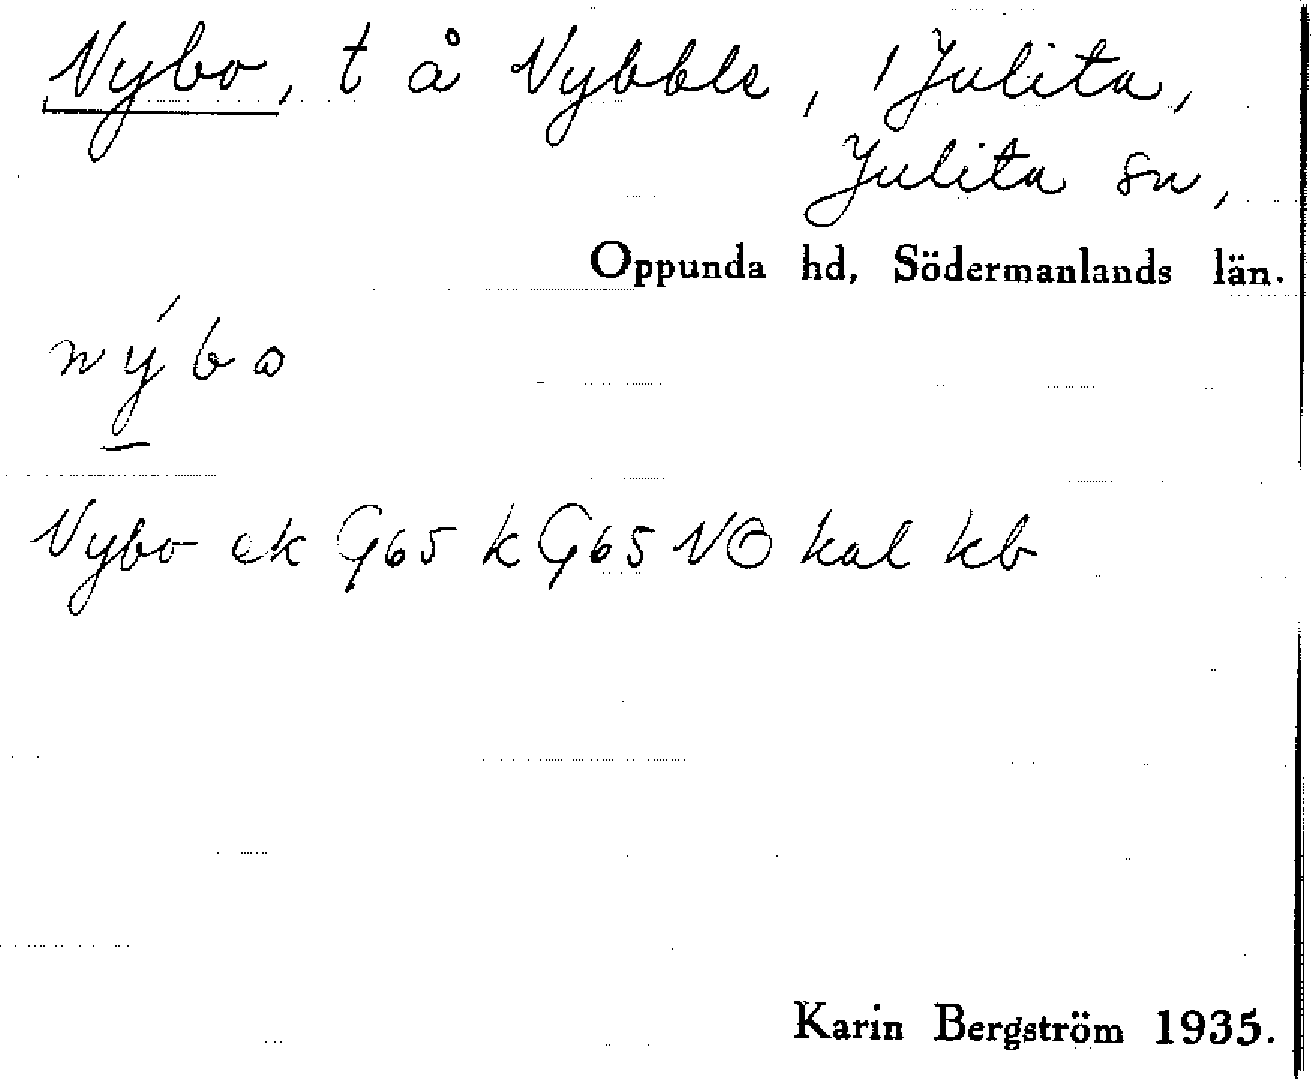 Nybo, t å Nybble, 1 Julita,
Julita sn,
Oppunda hd, Södermanlands län.
nýbo
Nybo ek G65 k G65 NO kal kb
Karin Bergström 1935.